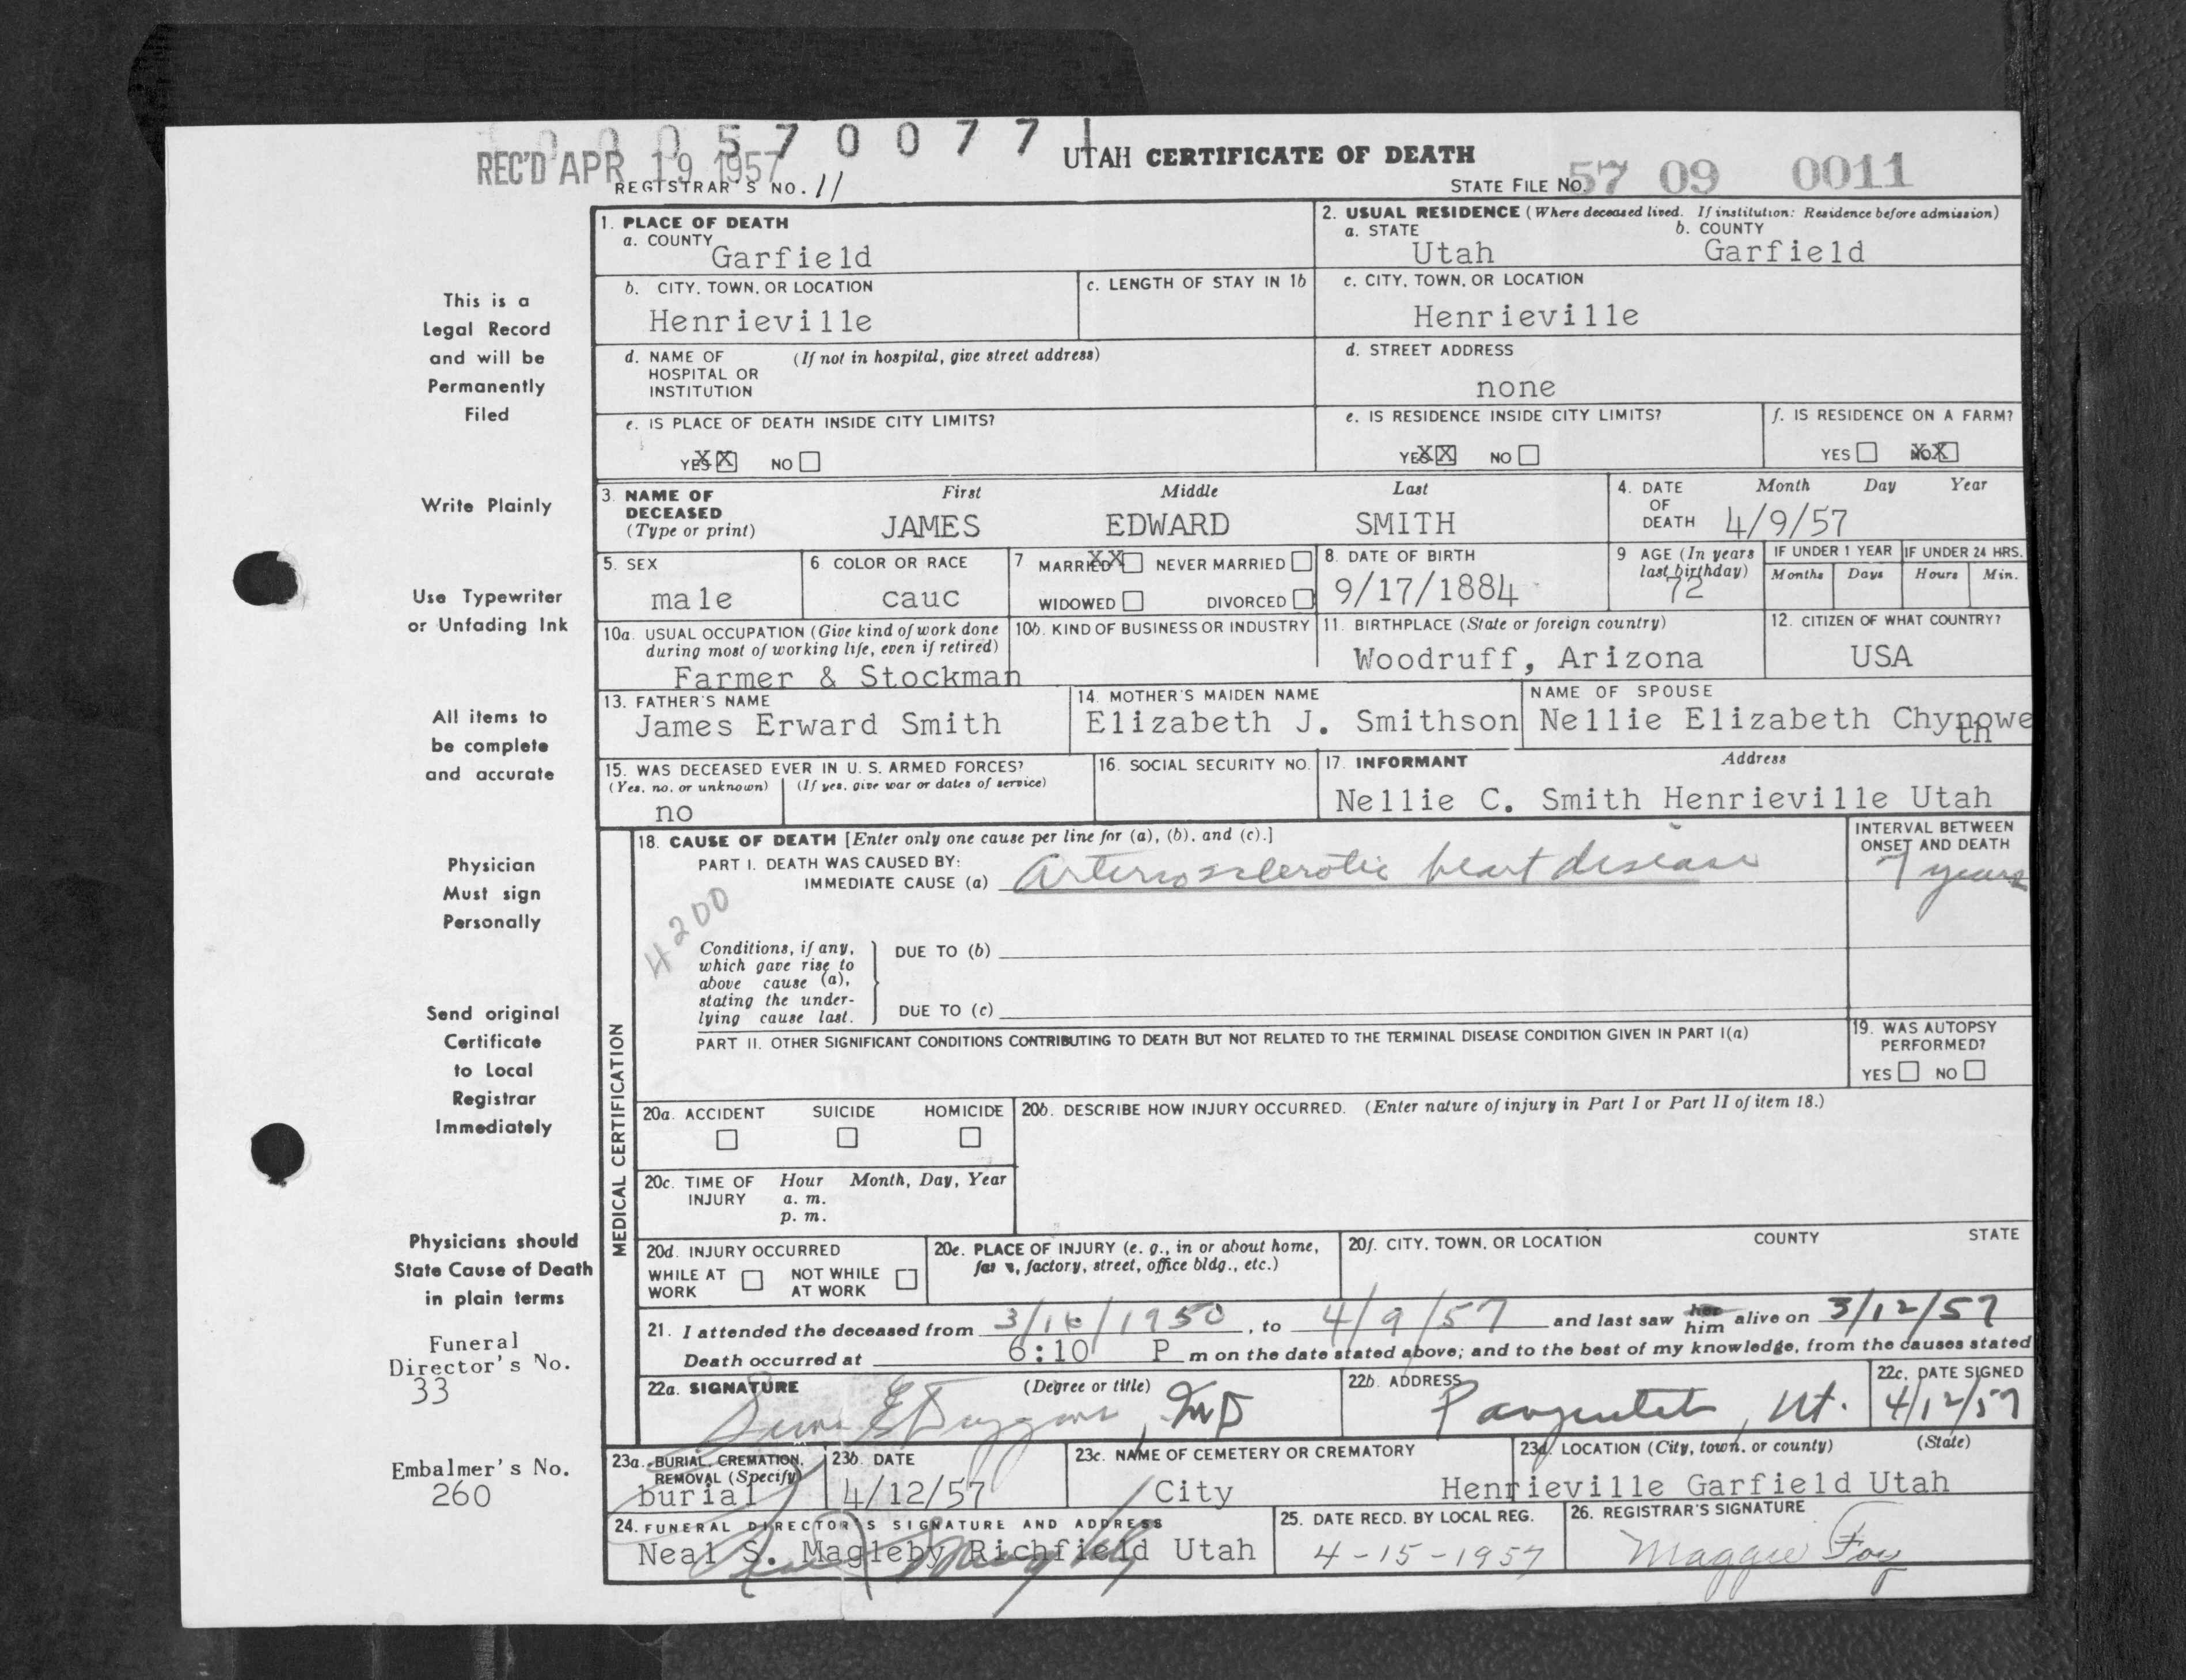 0 0 0 5 7 0 0 7 7 1
REC'D APR 19 1957
UTAH CERTIFICATE OF DEATH
REGISTRAR'S NO. 11
STATE FILE NO. 57 09 0011
This is a
Legal Record
and will be
Permanently
Filed
Write Plainly
Use Typewriter
or Unfading Ink
All items to
be complete
and accurate
Physician
Must sign
Personally
Send original
Certificate
to Local
Registrar
Immediately
Physicians should
State Cause of Death
in plain terms
Funeral
Director's No.
33
Embalmer's No.
260
1. PLACE OF DEATH
a. COUNTY
Garfield
2. USUAL RESIDENCE (Where deceased lived. If institution: Residence before admission)
a. STATE b. COUNTY
Utah Garfield
b. CITY, TOWN, OR LOCATION
Henrieville
c. LENGTH OF STAY IN 1b
c. CITY, TOWN, OR LOCATION
Henrieville
d. NAME OF (If not in hospital, give street address)
HOSPITAL OR
INSTITUTION
d. STREET ADDRESS
none
e. IS PLACE OF DEATH INSIDE CITY LIMITS?
YES XX NO
e. IS RESIDENCE INSIDE CITY LIMITS?
YES XX NO
f. IS RESIDENCE ON A FARM?
YES NO XX
3. NAME OF
DECEASED
(Type or print)
First Middle Last
JAMES EDWARD SMITH
4. DATE
OF
DEATH
Month Day Year
4/9/57
5. SEX
male
6 COLOR OR RACE
cauc
7 MARRIED XX NEVER MARRIED
WIDOWED DIVORCED
8. DATE OF BIRTH
9/17/1884
9 AGE (In years
last birthday)
72
IF UNDER 1 YEAR
Months Days
IF UNDER 24 HRS.
Hours Min.
10a. USUAL OCCUPATION (Give kind of work done
during most of working life, even if retired)
Farmer & Stockman
10b. KIND OF BUSINESS OR INDUSTRY
11. BIRTHPLACE (State or foreign country)
Woodruff, Arizona
12. CITIZEN OF WHAT COUNTRY?
USA
13. FATHER'S NAME
James Erward Smith
14. MOTHER'S MAIDEN NAME
Elizabeth J. Smithson
NAME OF SPOUSE
Nellie Elizabeth Chynowe
th
15. WAS DECEASED EVER IN U. S. ARMED FORCES?
(Yes, no, or unknown) (If yes, give war or dates of service)
no
16. SOCIAL SECURITY NO.
17. INFORMANT Address
Nellie C. Smith Henrieville Utah
MEDICAL CERTIFICATION
18. CAUSE OF DEATH [Enter only one cause per line for (a), (b), and (c).]
PART I. DEATH WAS CAUSED BY:
IMMEDIATE CAUSE (a) Arteriosclerotic heart disease
INTERVAL BETWEEN
ONSET AND DEATH
7 years
4200
Conditions, if any,
which gave rise to
above cause (a),
stating the under-
lying cause last.
DUE TO (b)
DUE TO (c)
PART II. OTHER SIGNIFICANT CONDITIONS CONTRIBUTING TO DEATH BUT NOT RELATED TO THE TERMINAL DISEASE CONDITION GIVEN IN PART I(a)
19. WAS AUTOPSY
PERFORMED?
YES NO
20a. ACCIDENT SUICIDE HOMICIDE
20b. DESCRIBE HOW INJURY OCCURRED. (Enter nature of injury in Part I or Part II of item 18.)
20c. TIME OF Hour Month, Day, Year
INJURY a. m.
p. m.
20d. INJURY OCCURRED
WHILE AT NOT WHILE
WORK AT WORK
20e. PLACE OF INJURY (e. g., in or about home,
factory, street, office bldg., etc.)
20f. CITY, TOWN, OR LOCATION COUNTY STATE
21. I attended the deceased from 3/16/1950, to 4/9/57 and last saw her him alive on 3/12/57
Death occurred at 6:10 P m on the date stated above; and to the best of my knowledge, from the causes stated
22a. SIGNATURE (Degree or title)
Duggins, MD
22b. ADDRESS
Panguitch, Ut.
22c. DATE SIGNED
4/12/57
23a. BURIAL, CREMATION,
REMOVAL (Specify)
burial
23b. DATE
4/12/57
23c. NAME OF CEMETERY OR CREMATORY
City
23d. LOCATION (City, town, or county) (State)
Henrieville Garfield Utah
24. FUNERAL DIRECTOR'S SIGNATURE AND ADDRESS
Neal S. Magleby Richfield Utah
25. DATE RECD. BY LOCAL REG.
4-15-1957
26. REGISTRAR'S SIGNATURE
Maggie Foy